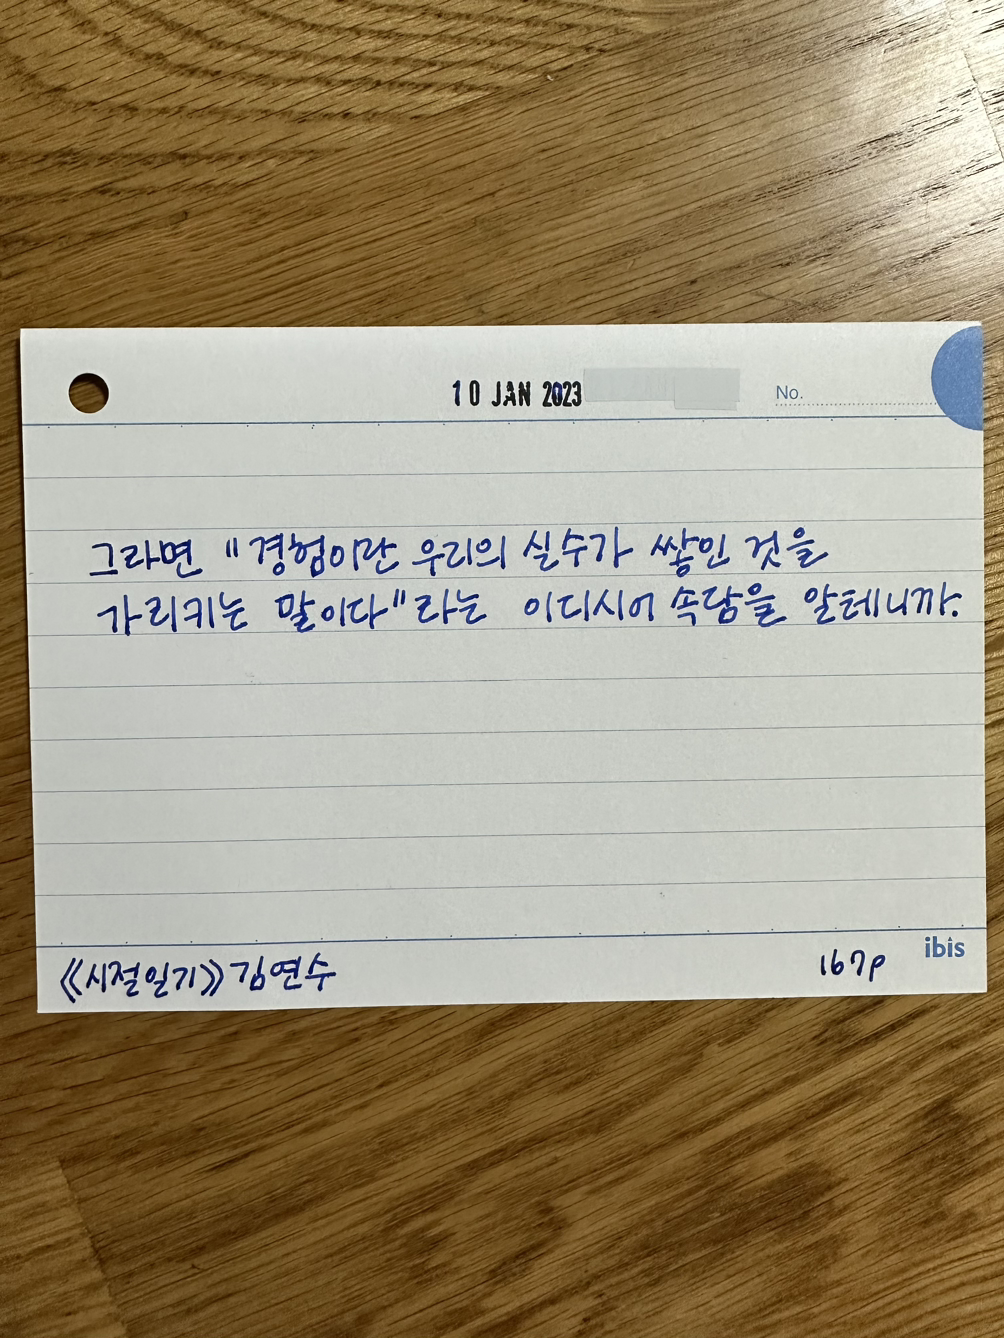 10 JAN 2023
No.
그라면 "경험이란 우리의 실수가 쌓인 것을
가리키는 말이다"라는 이디시어 속담을 알테니까.
ibis
《시절일기》 김연수 167p